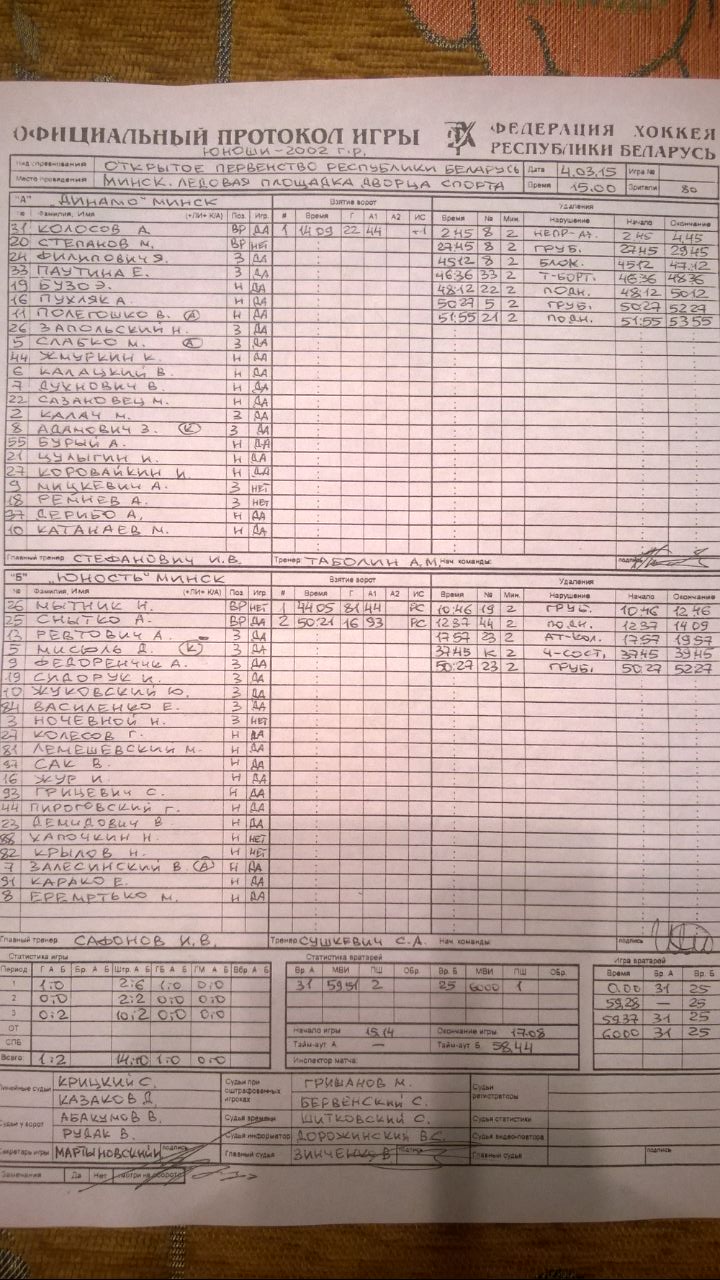 ОФИЦИАЛЬНЫЙ ПРОТОКОЛ ИГРЫ ФЕДЕРАЦИЯ ХОККЕЯ
ЮНОШИ-2002 г.р. РЕСПУБЛИКИ БЕЛАРУСЬ
Вид соревнования ОТКРЫТОЕ ПЕРВЕНСТВО РЕСПУБЛИКИ БЕЛАРУСЬ Дата 4.03.15 Игра №
Место проведения МИНСК. ЛЕДОВАЯ ПЛОЩАДКА ДВОРЦА СПОРТА Время 15.00 Зрители 80
"А" „ДИНАМО" МИНСК Взятие ворот Удаления
№ Фамилия, Имя (+/ПИ+ К/А) Поз Игр # Время Г А1 А2 ИС Время № Мин. Нарушение Начало Окончание
31 КОЛОСОВ А. ВР ДА 1 14 09 22 44 +1 2 45 8 2 НЕПР-АТ. 2 45 4 45
20 СТЕПАНОВ М. ВР НЕТ 27 45 8 2 ГРУБ. 27 45 29 45
24 ФИЛИПОВИЧ Я. З ДА 45 12 8 2 БЛОК. 45 12 47 12
33 ПАУТИНА Е. З ДА 46:36 33 2 Т-БОРТ. 46:36 48:36
19 БУЗО Э. Н ДА 48:12 22 2 ПОДН. 48:12 50:12
16 ПУХЛЯК А. Н ДА 50:27 5 2 ГРУБ. 50:27 52:27
11 ПОЛЕГОШКО В. (А) Н ДА 51:55 21 2 ПОДН. 51:55 53:55
26 ЗАПОЛЬСКИЙ Н. З ДА
5 СЛАБКО М. (А) З ДА
44 ЖМУРКИН К. Н ДА
6 КАЛАЦКИЙ В. Н ДА
7 ДУКНОВИЧ В. Н ДА
22 САЗАНОВЕЦ М. Н ДА
2 КАЛАЧ М. З ДА
8 АДАМОВИЧ З. (К) З ДА
55 БУРЫЙ А. Н ДА
21 ЦУЛЫГИН И. Н ДА
27 КОРОВАЙКИН И. Н ДА
9 МИЦКЕВИЧ А. З НЕТ
18 РЕМНЕВ А. З НЕТ
37 ДЕРИБО А. Н ДА
10 КАТАНАЕВ М. Н ДА
Главный тренер СТЕФАНОВИЧ И.В. Тренер ТАБОЛИН А.М. Нач. команды: подпись
"Б" „ЮНОСТЬ" МИНСК Взятие ворот Удаления
№ Фамилия, Имя (+/ПИ+ К/А) Поз Игр # Время Г А1 А2 ИС Время № Мин. Нарушение Начало Окончание
26 МЫТНИК Н. ВР НЕТ 1 44 05 81 44 РС 10:46 19 2 ГРУБ. 10:46 12:46
25 СНЫТКО А. ВР ДА 2 50:21 16 93 РС 12 37 44 2 ПОДН. 12 37 14 09
13 РЕВТОВИЧ А. З ДА 17 57 23 2 АТ-КОЛ. 17 57 19 57
5 МИСЮЛЬ Д. (К) З ДА 37 45 К 2 Ч-СОСТ. 37 45 39 45
9 ФЕДОРЕНЧИК А. З ДА 50:27 23 2 ГРУБ. 50:27 52:27
19 СИДОРУК И. З ДА
10 ЖУКОВСКИЙ Ю. З ДА
84 ВАСИЛЕНКО Е. З ДА
3 НОЧЕВНОЙ Н. З НЕТ
27 КОЛЕСОВ Г. Н ДА
81 ЛЕМЕШЕВСКИЙ М. Н ДА
97 САК В. Н ДА
16 ЖУР И. Н ДА
93 ГРИЦЕВИЧ С. Н ДА
44 ПИРОГОВСКИЙ Г. Н ДА
23 ДЕМИДОВИЧ В. Н ДА
88 ХАПОЧКИН Н. Н НЕТ
82 КРЫЛОВ Н. Н НЕТ
7 ЗАЛЕСИНСКИЙ В. (А) Н ДА
91 КАРАКО Е. Н ДА
8 ЕРЕМТЬКО М. Н ДА
Главный тренер САФОНОВ И.В. Тренер СУШКЕВИЧ С.А. Нач. команды подпись
Статистика игры Статистика вратарей Игра вратарей
Период Г А Б Бр. А Б Штр. А Б ГБ А Б ГМ А Б Вбр. А Б Вр. А МВИ ПШ Обр. Вр. Б МВИ ПШ Обр. Время Вр. А Вр. Б
1 1:0 2:6 1:0 0:0 31 59 51 2 25 60 00 1 0.00 31 25
2 0:0 2:2 0:0 0:0 59.28 — 25
3 0:2 10:2 0:0 0:0 59.37 31 25
ОТ Начало игры 15.14 Окончание игры 17.08 60 00 31 25
СПБ Тайм-аут А — Тайм-аут Б 58.44
Всего: 1:2 14:10 1:0 0:0 Инспектор матча:
Линейные судьи КРИЦКИЙ С. Судьи при оштрафованных игроках ГРИШАНОВ М. Судьи регистраторы
КАЗАКОВ Д. БЕРВЕНСКИЙ С.
Судьи у ворот АБАКУМОВ В. Судья времени ШИТКОВСКИЙ С. Судьи статистики
РУДАК В. Судья информатор ДОРОЖИНСКИЙ В.С. Судьи видеоповтора
Секретарь игры МАРТЫНОВСКИЙ подпись Главный судья ЗИНЧЕНКО В подпись Главный судья подпись
Замечания Да Нет смотри на обороте